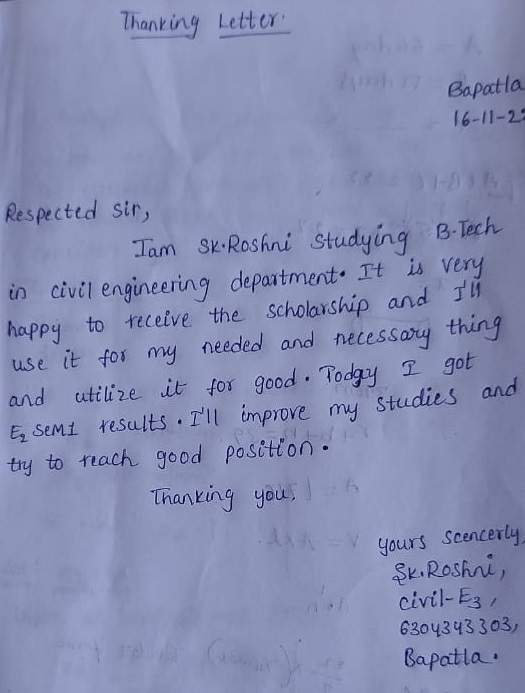 Thanking Letter:
Bapatla
16-11-22
Respected sir,
I am SK.Roshni studying B-Tech
in civil engineering department. It is very
happy to receive the scholarship and I'll
use it for my needed and necessary thing
and utilize it for good. Today I got
E2 SEM1 results. I'll improve my studies and
try to reach good position.
Thanking you,
yours scencerly,
SK.Roshni,
civil-E3,
6304343303,
Bapatla.